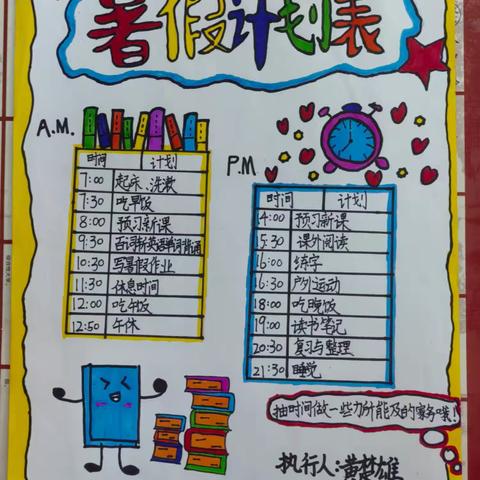 暑假计划表
A.M.
时间 计划
7:00 起床、洗漱
7:30 吃早饭
8:00 预习新课
9:30 百词斩英语单词背诵
10:30 写暑假作业
11:30 休息时间
12:00 吃午饭
12:50 午休
P.M
时间 计划
14:00 预习新课
15:30 课外阅读
16:00 练字
16:30 户外运动
18:00 吃晚饭
19:00 读书笔记
20:30 复习与整理
21:30 睡觉
抽时间做一些力所能及的家务噢!
执行人:黄